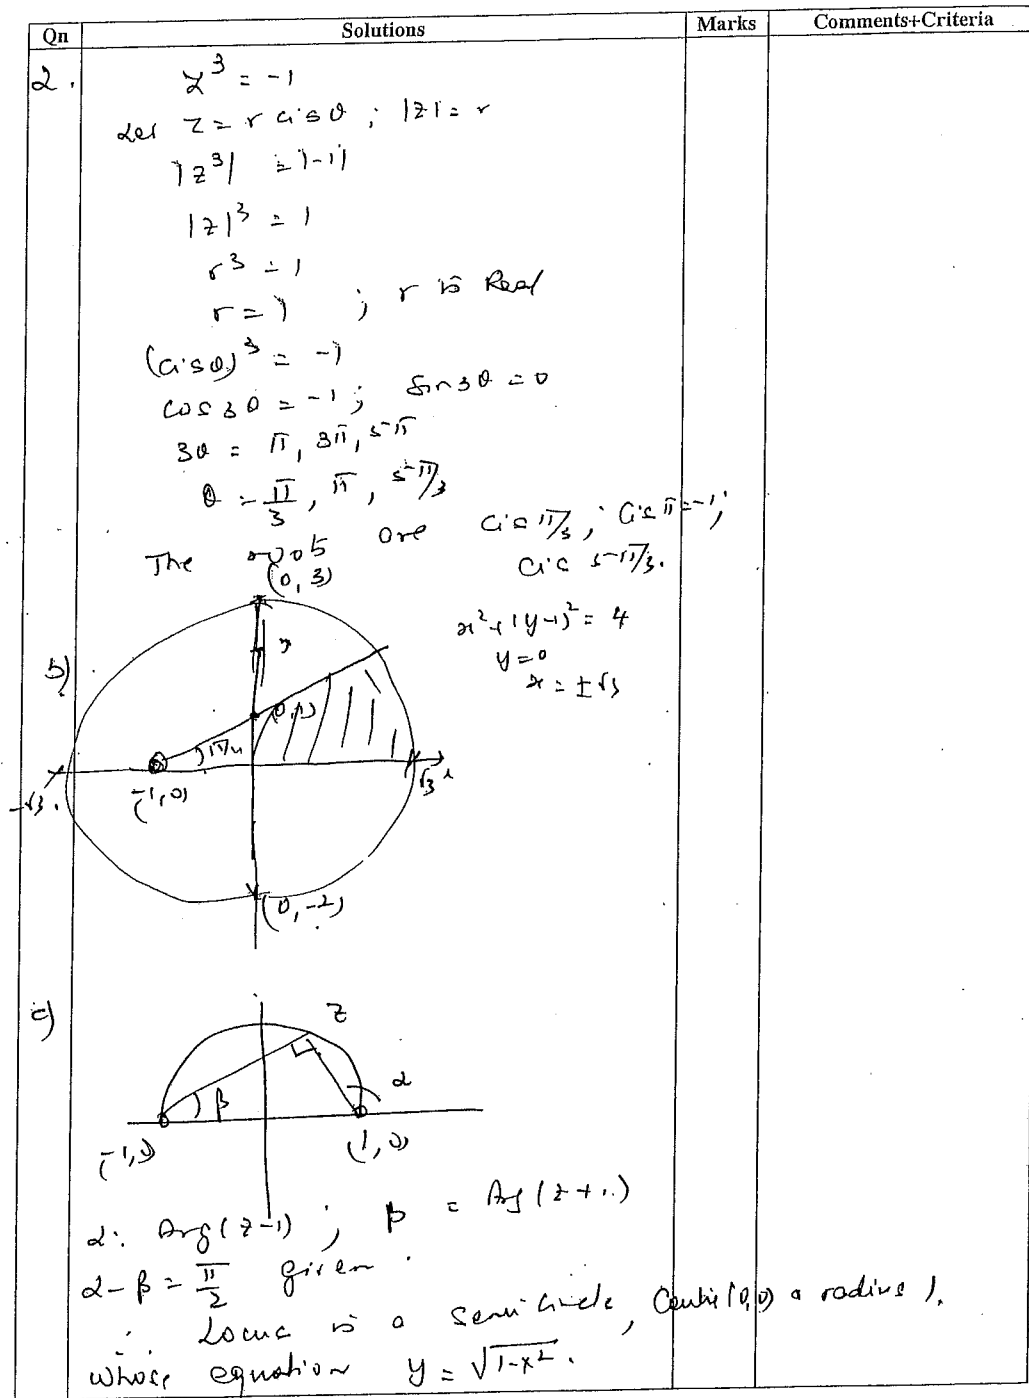 Qn Solutions Marks Comments+Criteria
2. z³ = -1
Let z = r cis θ ; |z| = r
|z³| = |-1|
|z|³ = 1
r³ = 1
r = 1 ; r is Real
(cis θ)³ = -1
cos 3θ = -1 ; sin 3θ = 0
3θ = π, 3π, 5π
θ = π/3, π, 5π/3
The roots are cis π/3 ; cis π = -1 ;
cis 5π/3.
(0, 3)
x² + (y-1)² = 4
y = 0
x = ±√3
b)
(0, 1)
π/4
-√3.
(-1, 0)
√3
(0, -2)
c)
z
β
α
(-1, 0)
(1, 0)
α: Arg(z-1) ; β = Arg(z+1)
α - β = π/2 given.
∴ Locus is a semi circle, Centre (0,0) a radius 1.
whose equation y = √1-x².